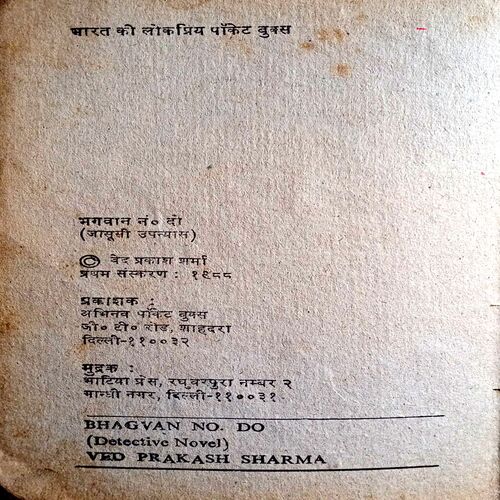 भारत की लोकप्रिय पॉकेट बुक्स
भगवान नं० दो
(जासूसी उपन्यास)
© वेद प्रकाश शर्मा
प्रथम संस्करण : १९८८
प्रकाशक :
अभिनव पॉकेट बुक्स
जी० टी० रोड, शाहदरा
दिल्ली-११००३२
मुद्रक :
भाटिया प्रेस, रघुवरपुरा नम्बर २
गान्धी नगर, दिल्ली-११००३१
BHAGVAN NO. DO
(Detective Novel)
VED PRAKASH SHARMA